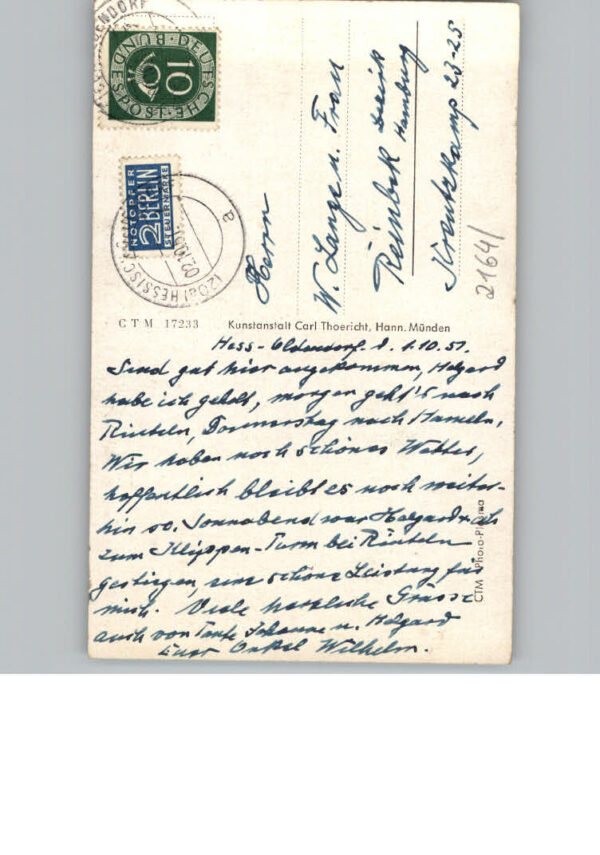 DEUTSCHE
BUNDESPOST
10
NOTOPFER
2 BERLIN
STEUERMARKE
(20a) HESSISCH
02.10.
a
Herrn
W. Lange u. Frau
Reinbek Bezirk
Hamburg
Kreutzkamp 23-25
2164/
CTM 17233 Kunstanstalt Carl Thoericht, Hann. Münden
Hess-Oldendorf. d. 1.10.51.
Sind gut hier angekommen, Helgard
habe ich geholt, morgen geht's nach
Rinteln, Donnerstag nach Hameln,
Wir haben noch schönes Wetter,
hoffentlich bleibt es noch weiter-
hin so. Sonnabend war Helgard
zum Klippen-Turm bei Rinteln
gestiegen, eine schöne Leistung für
mich. Viele herzliche Grüsse
auch von Tante Johanne u. Helgard
Euer Onkel Wilhelm.
CTM Photo